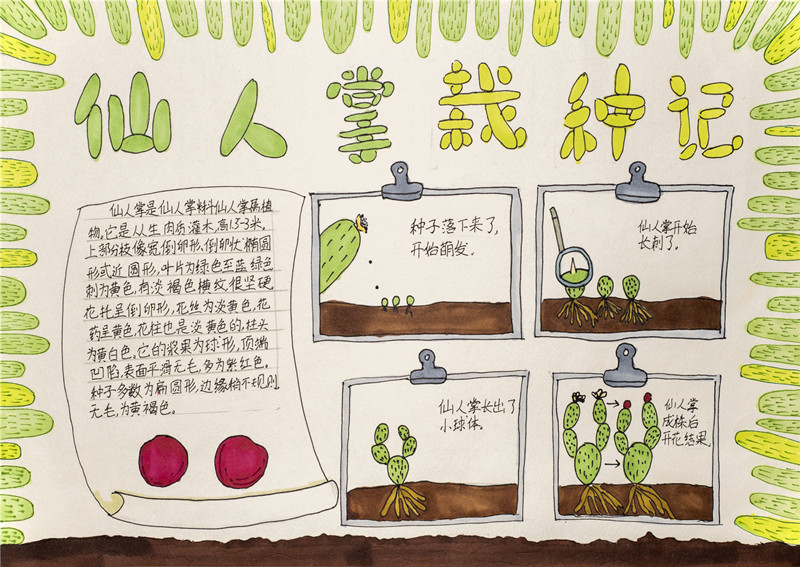 仙人掌栽种记
仙人掌是仙人掌科仙人掌属植
物。它是丛生肉质灌木,高1.5-3米,
上部分枝像宽倒卵形、倒卵状椭圆
形或近圆形,叶片为绿色至蓝绿色
刺为黄色,有淡褐色横纹,很坚硬。
花托呈倒卵形,花丝为淡黄色,花
药呈黄色,花柱也是淡黄色的,柱头
为黄白色。它的浆果为球形,顶端
凹陷,表面平滑无毛,多为紫红色。
种子多数为扁圆形,边缘稍不规则
无毛,为黄褐色。
种子落下来了,
开始萌发。
仙人掌开始
长刺了。
仙人掌长出了
小球体。
仙人掌
成株后
开花结果。